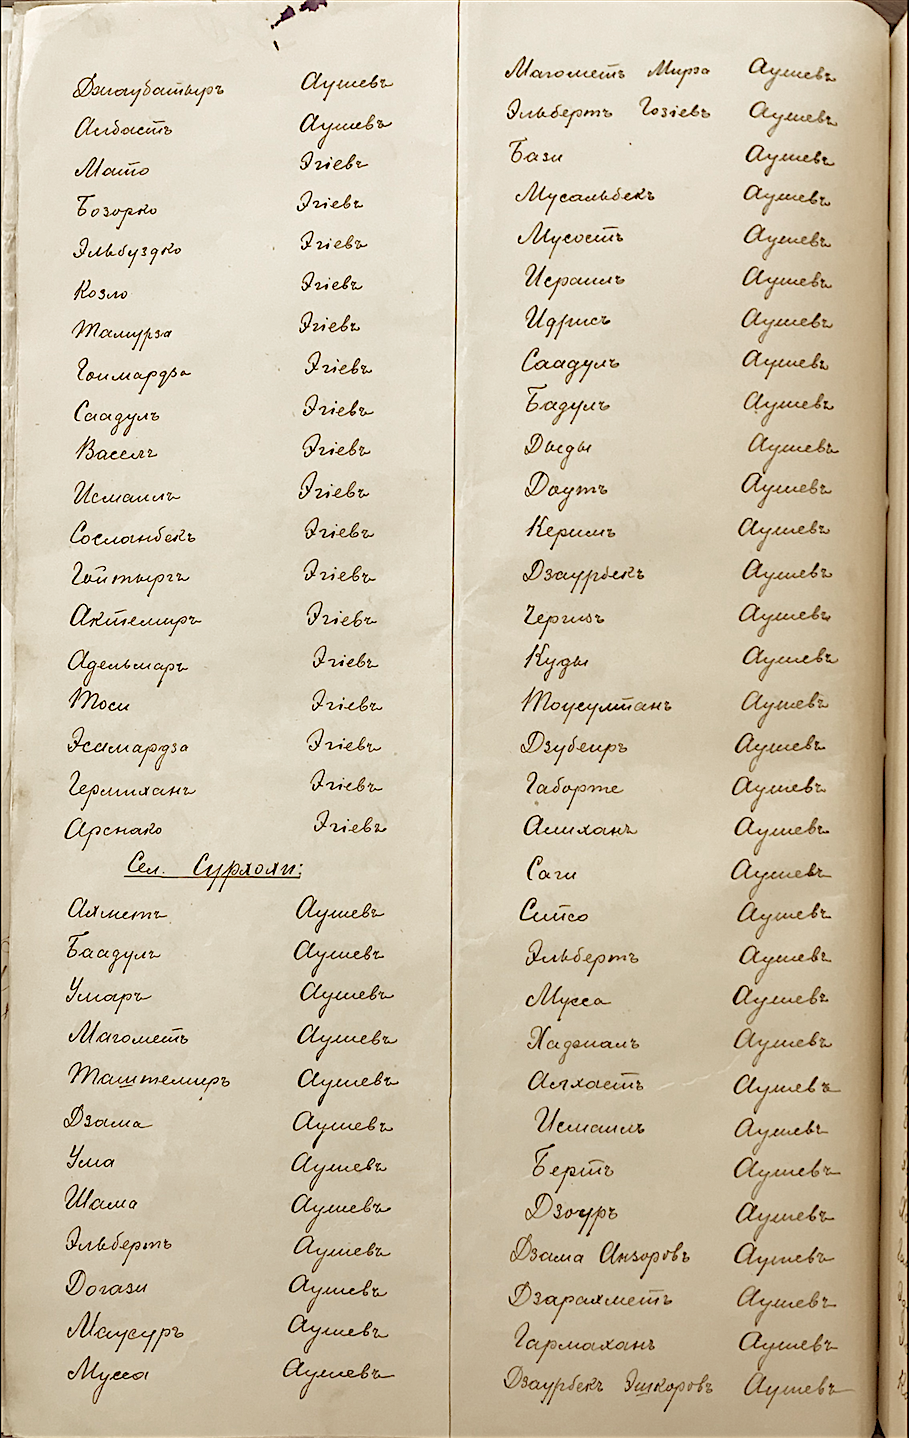 Джаубатыръ Аушевъ
Асбастъ Аушевъ
Мато Эгіевъ
Бозорко Эгіевъ
Эльбуздко Эгіевъ
Козло Эгіевъ
Тамурза Эгіевъ
Гоимардза Эгіевъ
Саадулъ Эгіевъ
Васелъ Эгіевъ
Исмаилъ Эгіевъ
Сосланбекъ Эгіевъ
Гойтыргъ Эгіевъ
Актемиръ Эгіевъ
Адельмаръ Эгіевъ
Тоси Эгіевъ
Эсамардза Эгіевъ
Германханъ Эгіевъ
Арснако Эгіевъ
Сел. Сурхохи:
Ахметъ Аушевъ
Баадулъ Аушевъ
Умаръ Аушевъ
Магометъ Аушевъ
Таштемиръ Аушевъ
Дзама Аушевъ
Ума Аушевъ
Шама Аушевъ
Эльбертъ Аушевъ
Догази Аушевъ
Маусуръ Аушевъ
Мусса Аушевъ
Магометъ Мирза Аушевъ
Эльбертъ Гозіевъ Аушевъ
Бази Аушевъ
Мусальбекъ Аушевъ
Мусостъ Аушевъ
Исраилъ Аушевъ
Идрисъ Аушевъ
Саадулъ Аушевъ
Бадулъ Аушевъ
Дыды Аушевъ
Даутъ Аушевъ
Керимъ Аушевъ
Дзаурбекъ Аушевъ
Чергизъ Аушевъ
Куды Аушевъ
Тоусултанъ Аушевъ
Дзубеиръ Аушевъ
Габорте Аушевъ
Алиханъ Аушевъ
Саги Аушевъ
Сипсо Аушевъ
Эльбертъ Аушевъ
Мусса Аушевъ
Хаджалъ Аушевъ
Алхастъ Аушевъ
Исмаилъ Аушевъ
Бертъ Аушевъ
Дзоуръ Аушевъ
Дзама Анзоровъ Аушевъ
Дзарахметъ Аушевъ
Гармаханъ Аушевъ
Дзаурбекъ Эшкоровъ Аушевъ